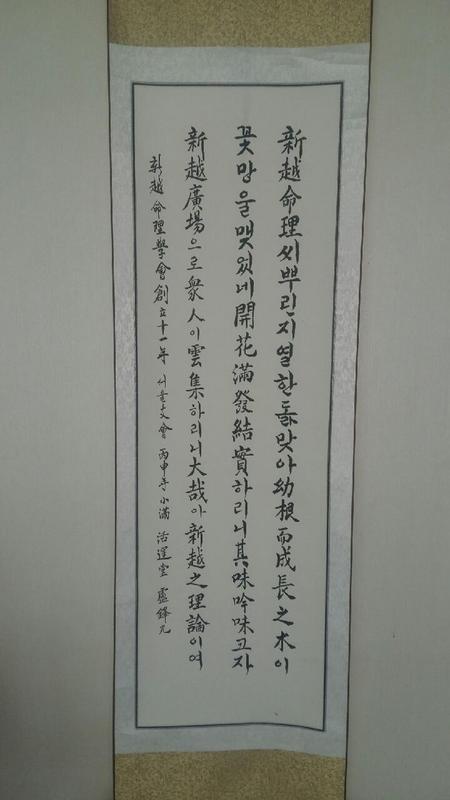 新越命理씨뿌린지열한돐맞아幼根而成長之木이
꽃망울맺었네開花滿發結實하리니其味吟味코자
新越廣場으로衆人이雲集하리니大哉아新越之理論이여
新越命理學會創立十一年 서울大會 丙申年小滿 活運堂